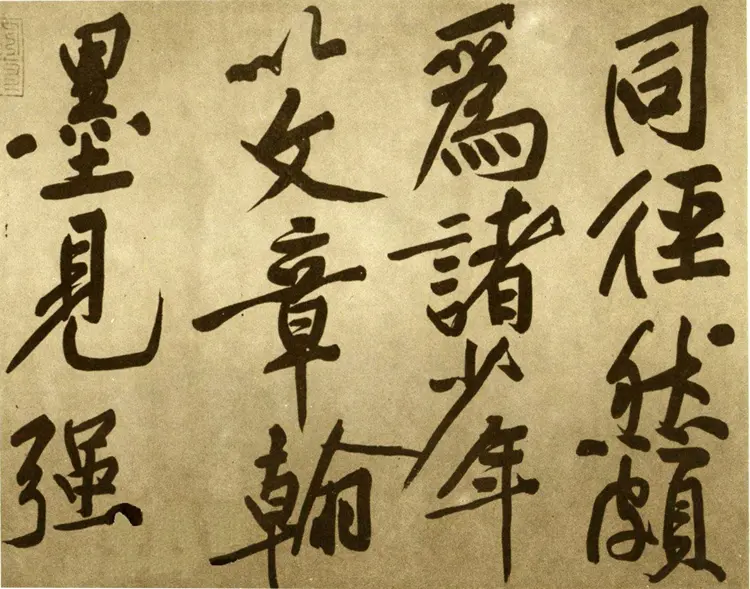 同徑然頗
為諸少年
以文章翰
墨見强